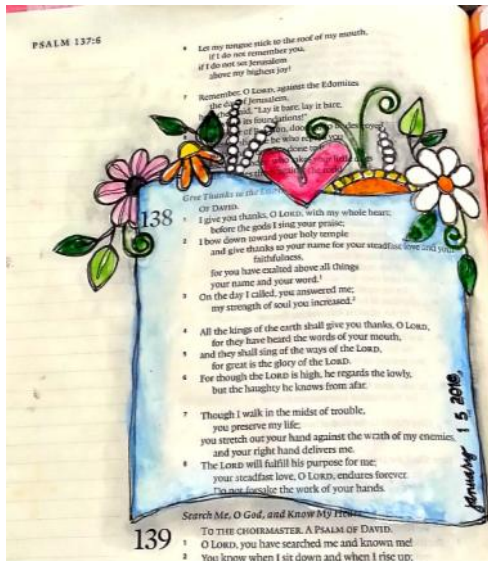 PSALM 137:6
6 Let my tongue stick to the roof of my mouth,
if I do not remember you,
if I do not set Jerusalem
above my highest joy!
7 Remember, O LORD, against the Edomites
the day of Jerusalem,
said, "Lay it bare, lay it bare,
its foundations!"
be he who
your little ones
Give Thanks to the
OF DAVID.
138 1 I give you thanks, O LORD, with my whole heart;
before the gods I sing your praise;
2 I bow down toward your holy temple
and give thanks to your name for your steadfast love and your
faithfulness,
for you have exalted above all things
your name and your word.1
3 On the day I called, you answered me;
my strength of soul you increased.2
4 All the kings of the earth shall give you thanks, O LORD,
for they have heard the words of your mouth,
5 and they shall sing of the ways of the LORD,
for great is the glory of the LORD.
6 For though the LORD is high, he regards the lowly,
but the haughty he knows from afar.
7 Though I walk in the midst of trouble,
you preserve my life;
you stretch out your hand against the wrath of my enemies,
and your right hand delivers me.
8 The LORD will fulfill his purpose for me;
your steadfast love, O LORD, endures forever.
Do not forsake the work of your hands.
january 15 2016
Search Me, O God, and Know My Heart
139 TO THE CHOIRMASTER. A PSALM OF DAVID.
1 O LORD, you have searched me and known me!
2 You know when I sit down and when I rise up;